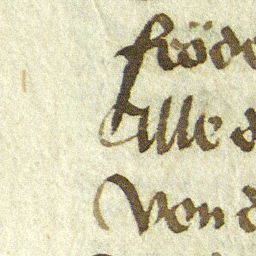 fröde
Alle d
Von d